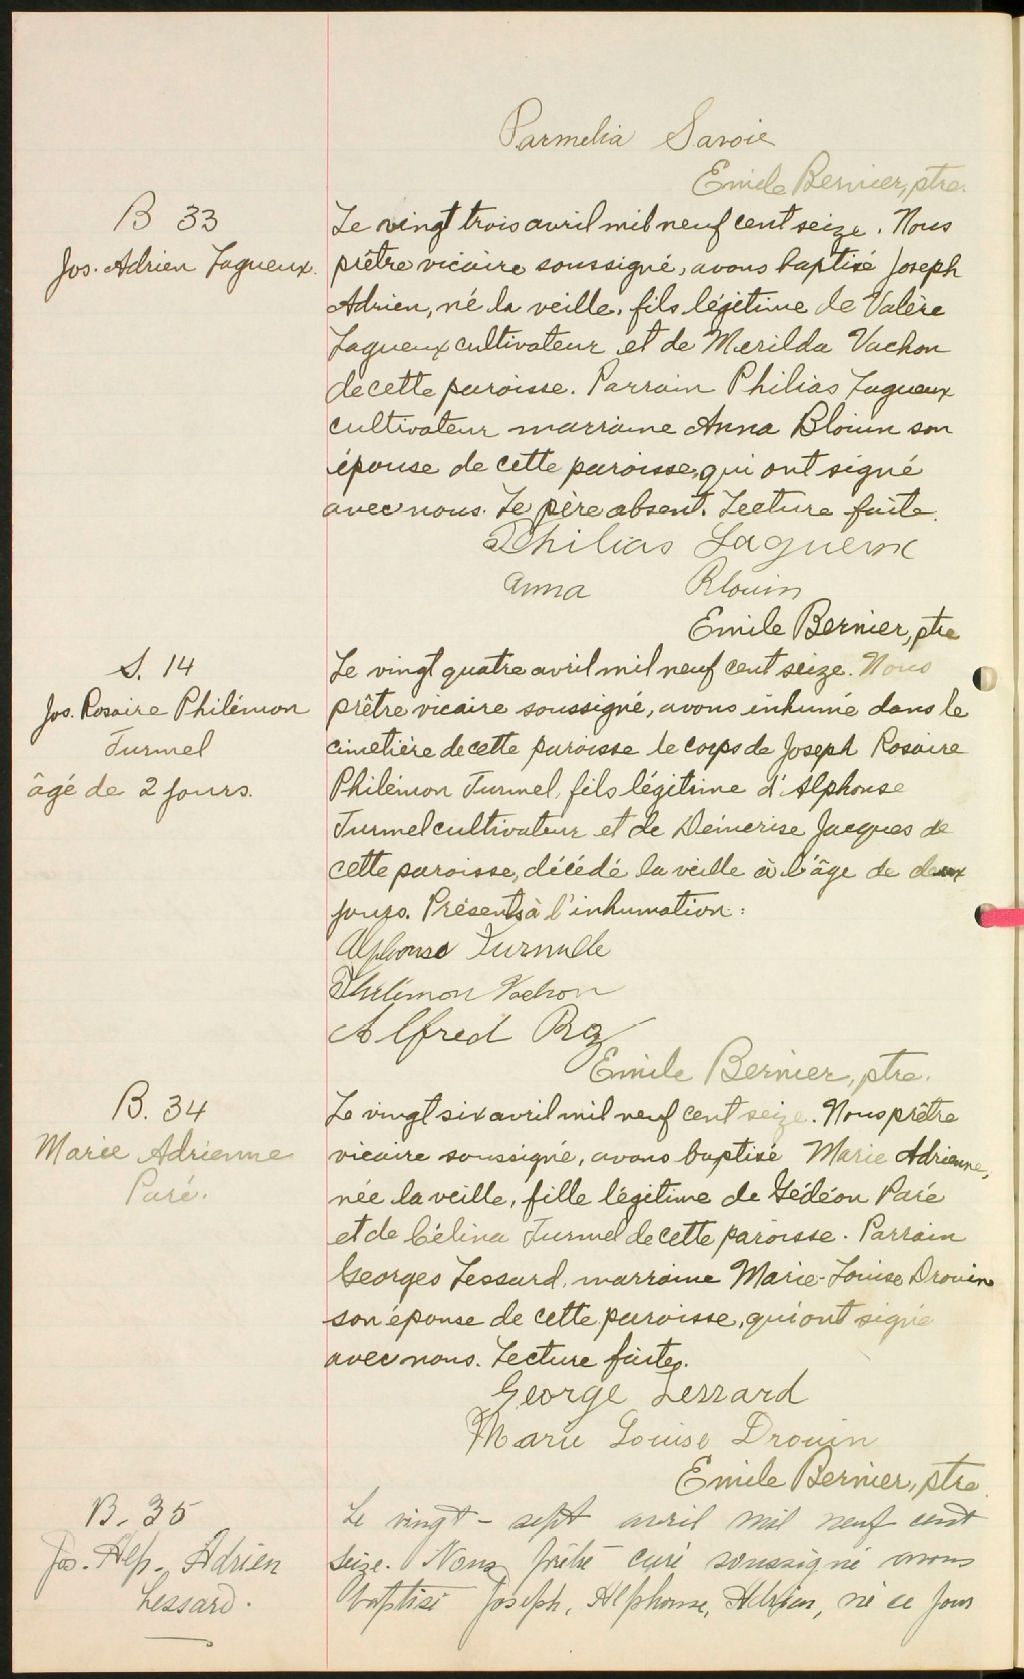 Parmelia Savoie
Emile Bernier, ptre.
B 33
Jos. Adrien Lagueux.
Le vingt trois avril mil neuf cent seize. Nous
prêtre vicaire soussigné, avons baptisé Joseph
Adrien, né la veille, fils légitime de Valère
Lagueux cultivateur et de Merilda Vachon
de cette paroisse. Parrain Philias Lagueux
cultivateur marraine Anna Blouin son
épouse de cette paroisse, qui ont signé
avec nous. Le père absent. Lecture faite.
Philias Lagueux
Anna Blouin
Emile Bernier, ptre
S. 14
Jos. Rosaire Philémon
Turmel
âgé de 2 jours.
Le vingt quatre avril mil neuf cent seize. Nous
prêtre vicaire soussigné, avons inhumé dans le
cimetière de cette paroisse le corps de Joseph Rosaire
Philémon Turmel, fils légitime d'Alphonse
Turmel cultivateur et de Démerise Jacques de
cette paroisse, décédé la veille à l'âge de deux
jours. Présents à l'inhumation:
Alphonse Turmelle
Philémon Vachon
Alfred
Emile Bernier, ptre.
B. 34
Marie Adrienne
Paré.
Le vingt six avril mil neuf cent seize. Nous prêtre
vicaire soussigné, avons baptisé Marie Adrienne,
née la veille, fille légitime de Gédéon Paré
et de Célina Turmel de cette paroisse. Parrain
Georges Lessard, marraine Marie-Louise Drouin
son épouse de cette paroisse, qui ont signé
avec nous. Lecture faite.
George Lessard
Marie Louise Drouin
Emile Bernier, ptre.
B. 35
Jos. Alp. Adrien
Lessard.
Le vingt-sept avril mil neuf cent
seize. Nous prêtre curé soussigné avons
baptisé Joseph, Alphonse, Adrien, né ce jour